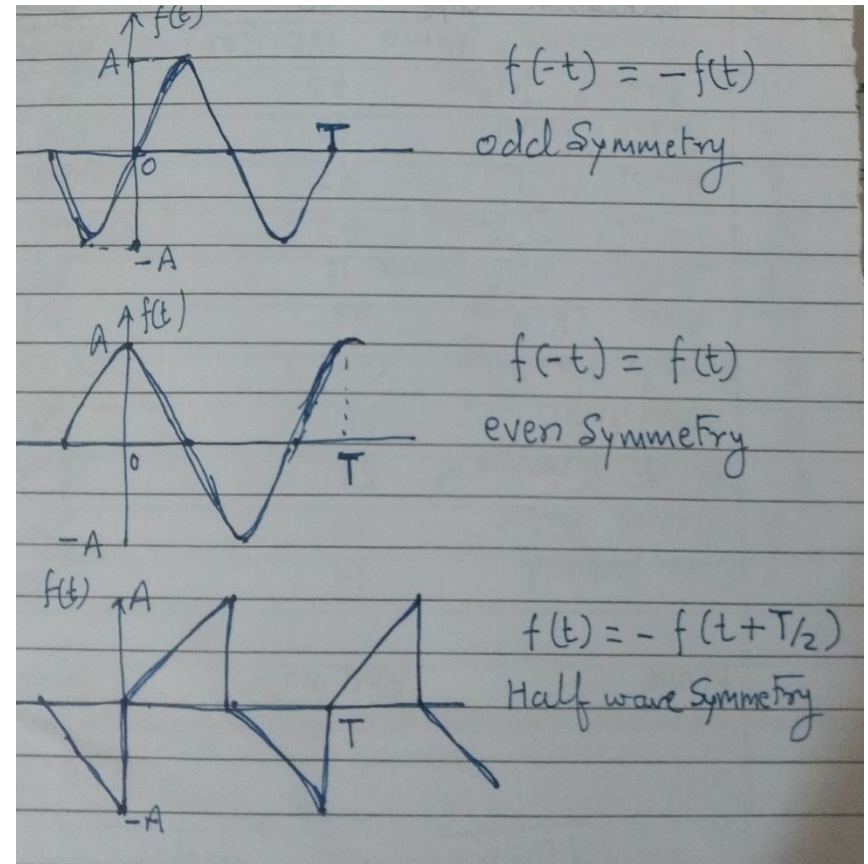 f(t)
A
f(-t) = -f(t)
T
odd Symmetry
0
-A
f(t)
A
f(-t) = f(t)
even Symmetry
0
T
-A
f(t) A
f(t) = - f(t+T/2)
Half wave Symmetry
T
-A